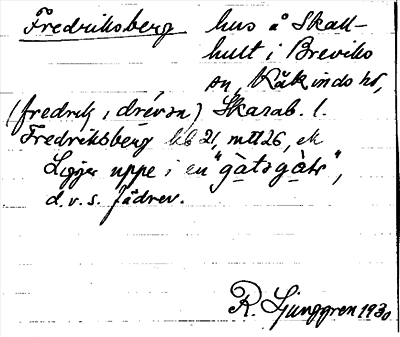 Fredriksberg hus å Skall-
hult i Breviks
sn, Kåkinds hd,
(fredrik, i drévṣn) Skarab. l.
Fredriksberg hb 21, mtl 26, ek
Ligger uppe i en "gàtsgàtr",
d.v.s. fädrev.
R. Ljunggren 1930